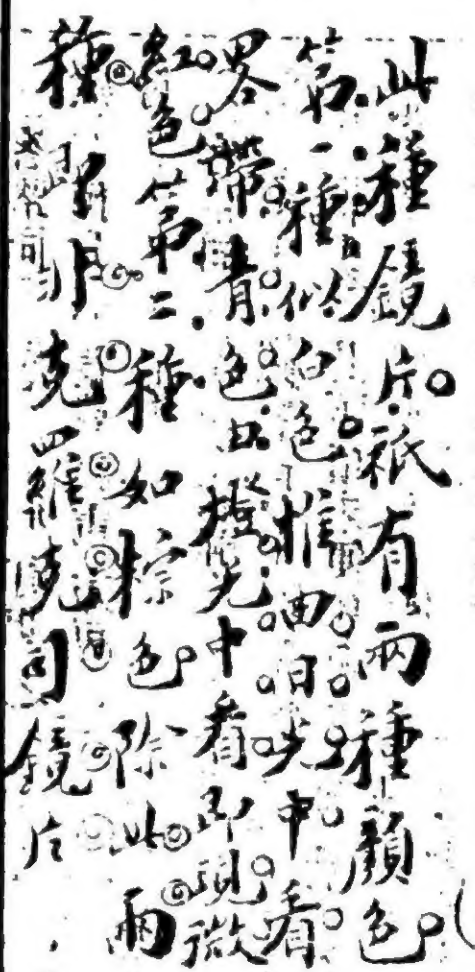 此種鏡片祇有兩種顏色
第一種似白色惟由日光中看
畧帶青色且燈光中看即現微
紅色第二種如棕色除此兩
種非克羅克司鏡片